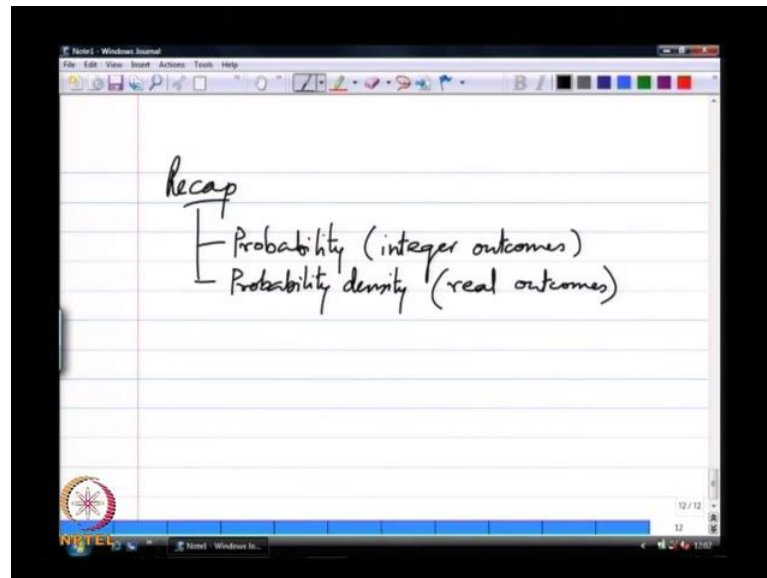 Note1 - Windows Journal
File Edit View Insert Actions Tools Help
B I
Recap
Probability (integer outcomes)
Probability density (real outcomes)
12 / 12
12
NPTEL
Note1 - Windows Jo...
1202